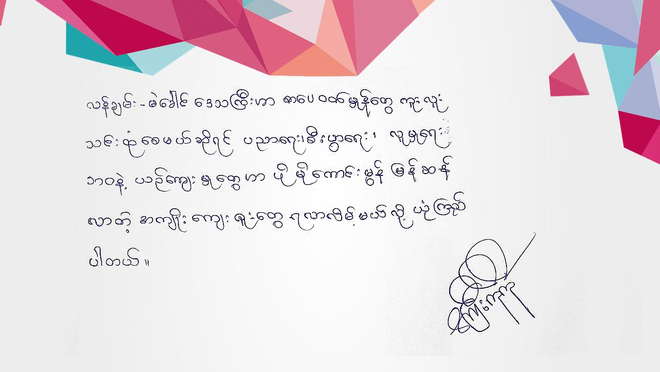 လန်ချမ်း - မဲခေါင် ဒေသကြီးဟာ စာပေ ဝတ်မှုန်တွေ ကူးလူး
သင်းထုံစေမယ်ဆိုရင် ပညာရေး၊စီးပွားရေး၊ လူမှုရေး
ဘဝနဲ့ ယဉ်ကျေးမှုတွေဟာ ပိုမိုကောင်းမွန် မြန်ဆန်
လာတဲ့ အကျိုးကျေးဇူးတွေ ရလာလိမ့်မယ်လို့ ယုံကြည်
ပါတယ်။